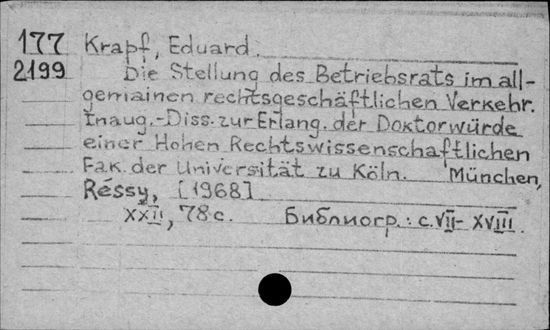 177 Krapf, Eduard.
2199 Die Stellung des Betriebsrats im all-
gemainen rechtsgeschäftlichen Verkehr.
Inaug.-Diss. zur Erlang. der Doktorwürde
einer Hohen Rechtswissenschaftlichen
Fak. der Universität zu Köln. München,
Réssy, [1968]
XXII, 78 c. Библиогр.: с. VII- XVIII.